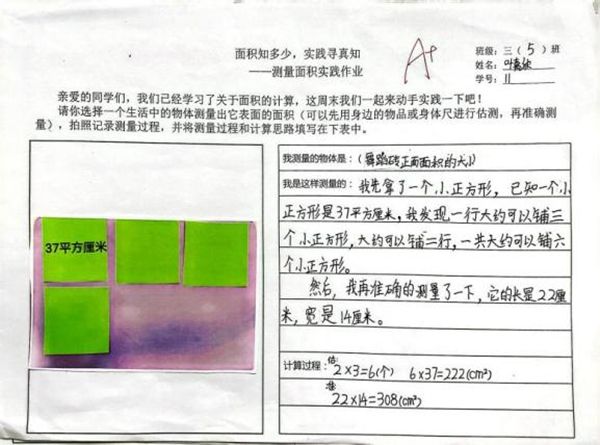 面积知多少，实践寻真知
——测量面积实践作业
A+
班级：三（5）班
姓名：叶
学号：11
亲爱的同学们，我们已经学习了关于面积的计算，这周末我们一起来动手实践一下吧！
请你选择一个生活中的物体测量出它表面的面积（可以先用身边的物品或身体尺进行估测，再准确测
量），拍照记录测量过程，并将测量过程和计算思路填写在下表中。
37平方厘米
我测量的物体是：（舞蹈砖正面面积的大小）
我是这样测量的：我先拿了一个小正方形，已知一个小
正方形是37平方厘米，我发现一行大约可以铺三
个小正方形，大约可以铺二行，一共大约可以铺六
个小正方形。
然后，我再准确的测量了一下，它的长是22厘
米，宽是14厘米。
计算过程：估：2×3=6(个) 6×37=222(cm²)
准：22×14=308(cm²)